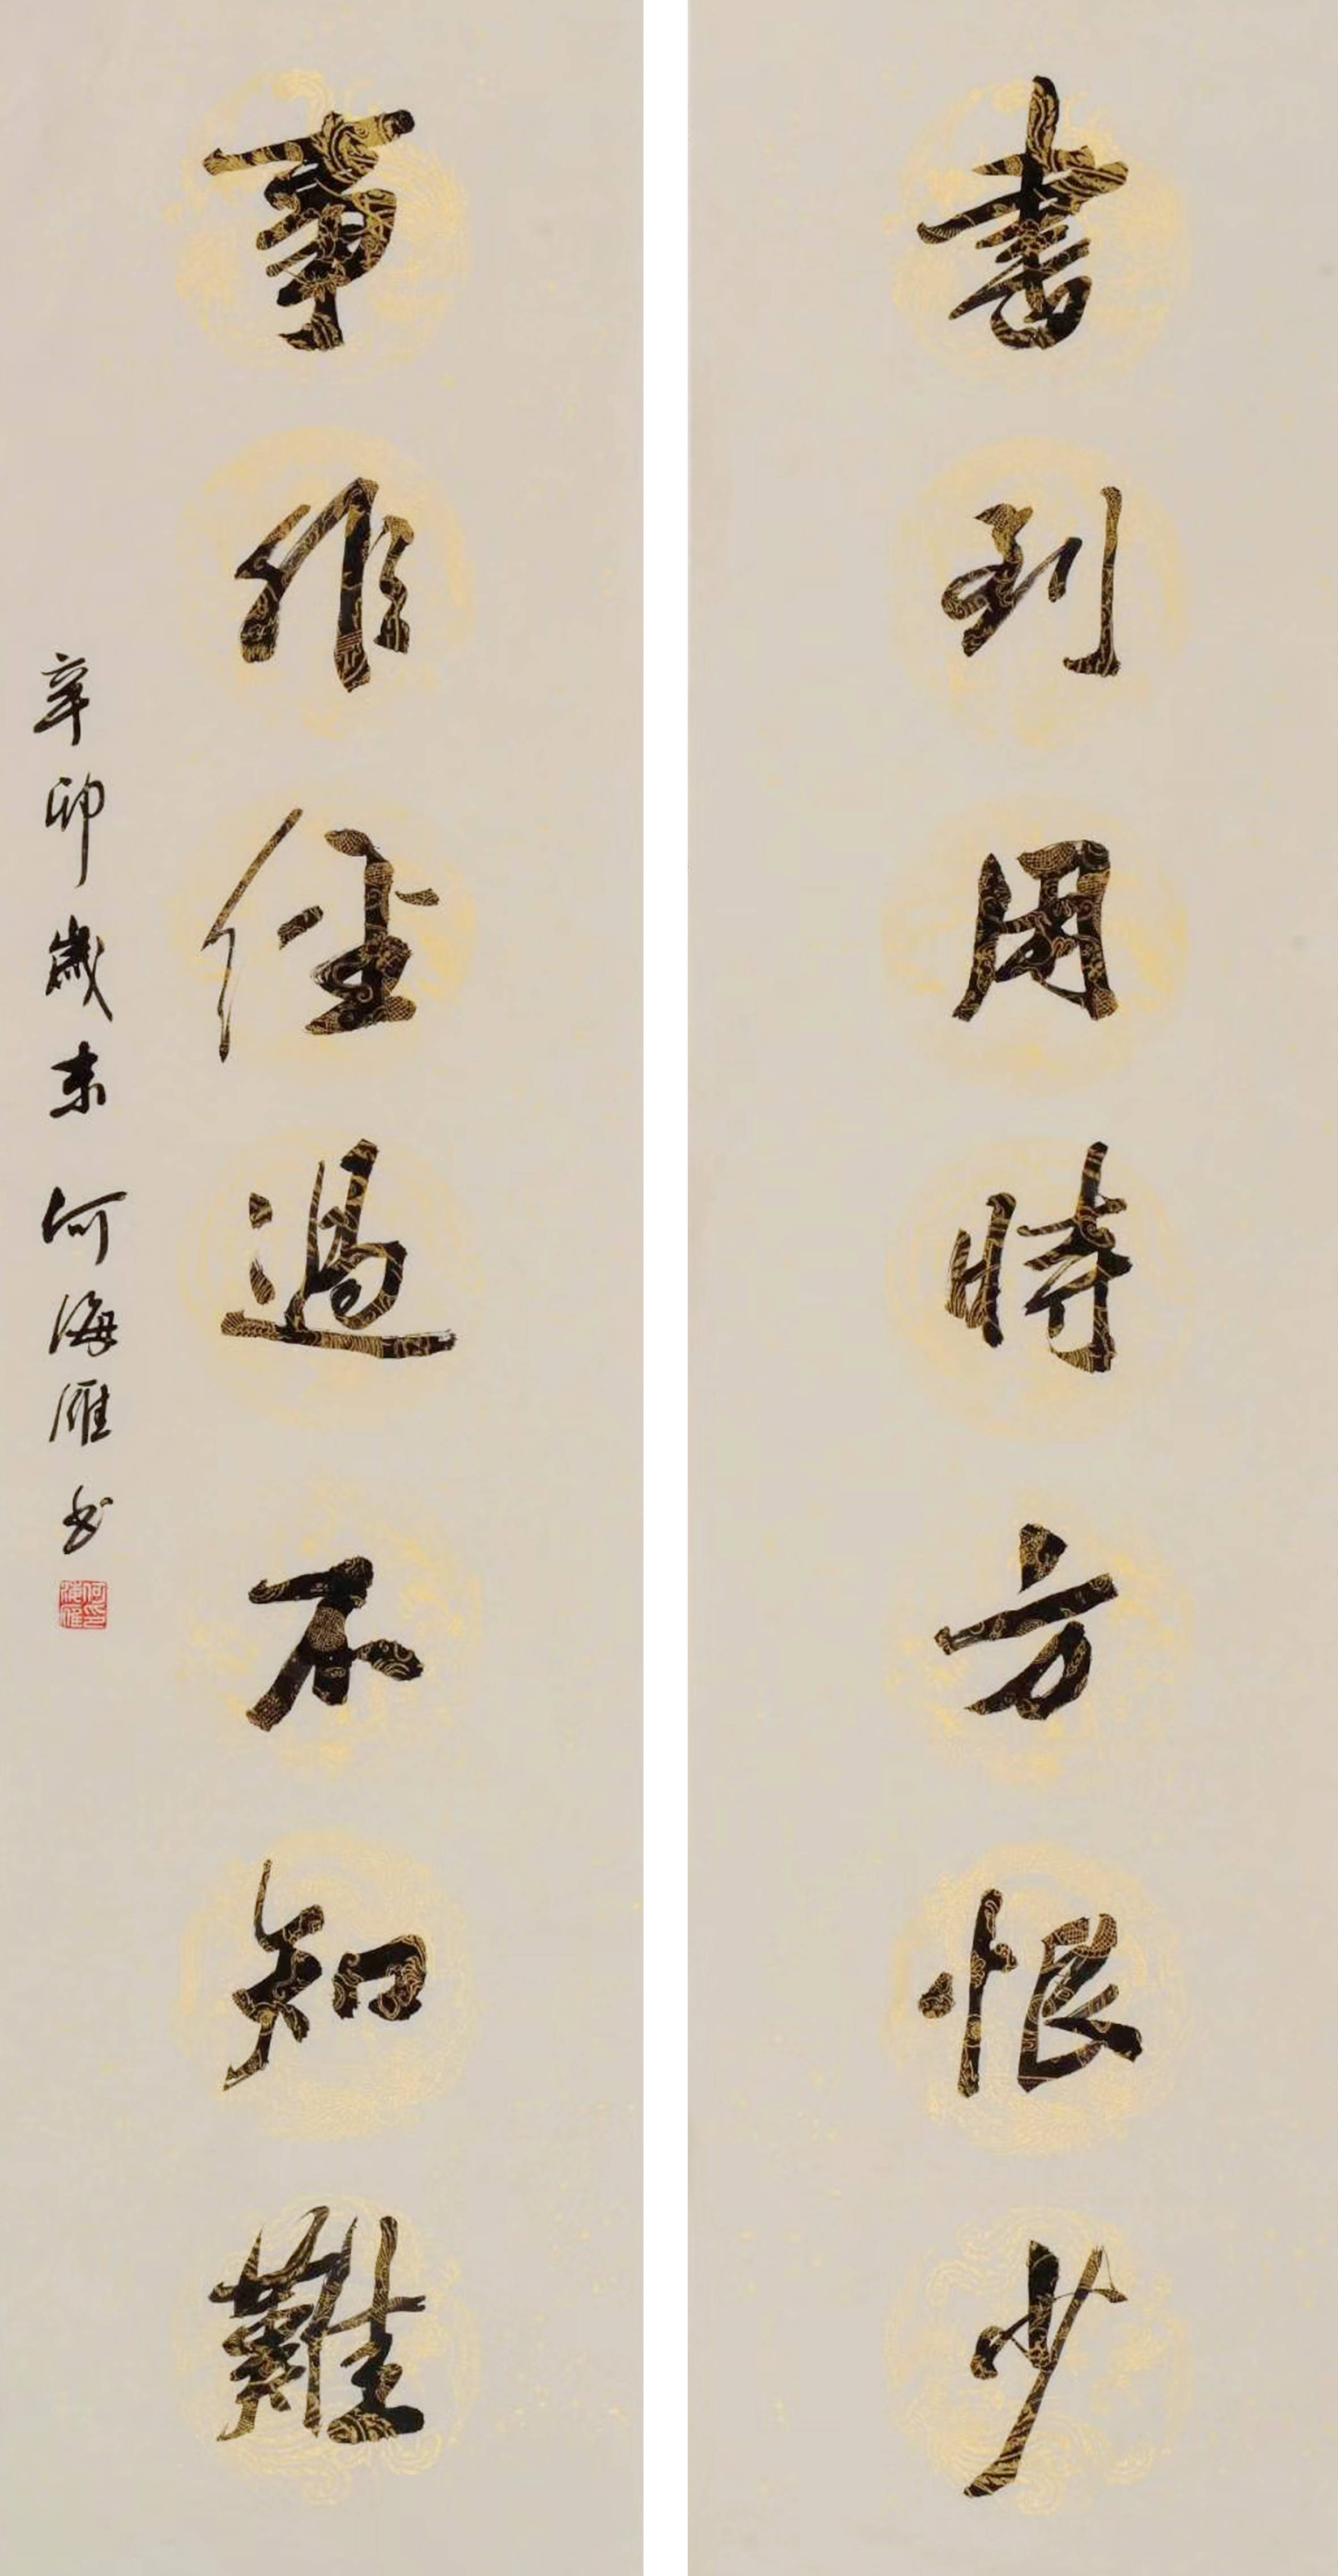 書到用時方恨少
事非經過不知難
辛卯歲末 何海雁书
何印海雁